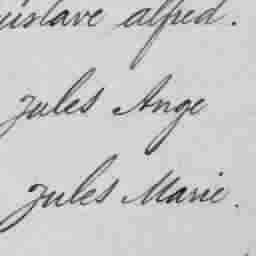 ustave alfred.
Jules Ange
Jules Marie.